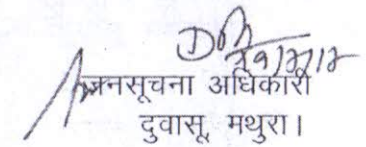 जनसूचना अधिकारी
दुवासू, मथुरा।